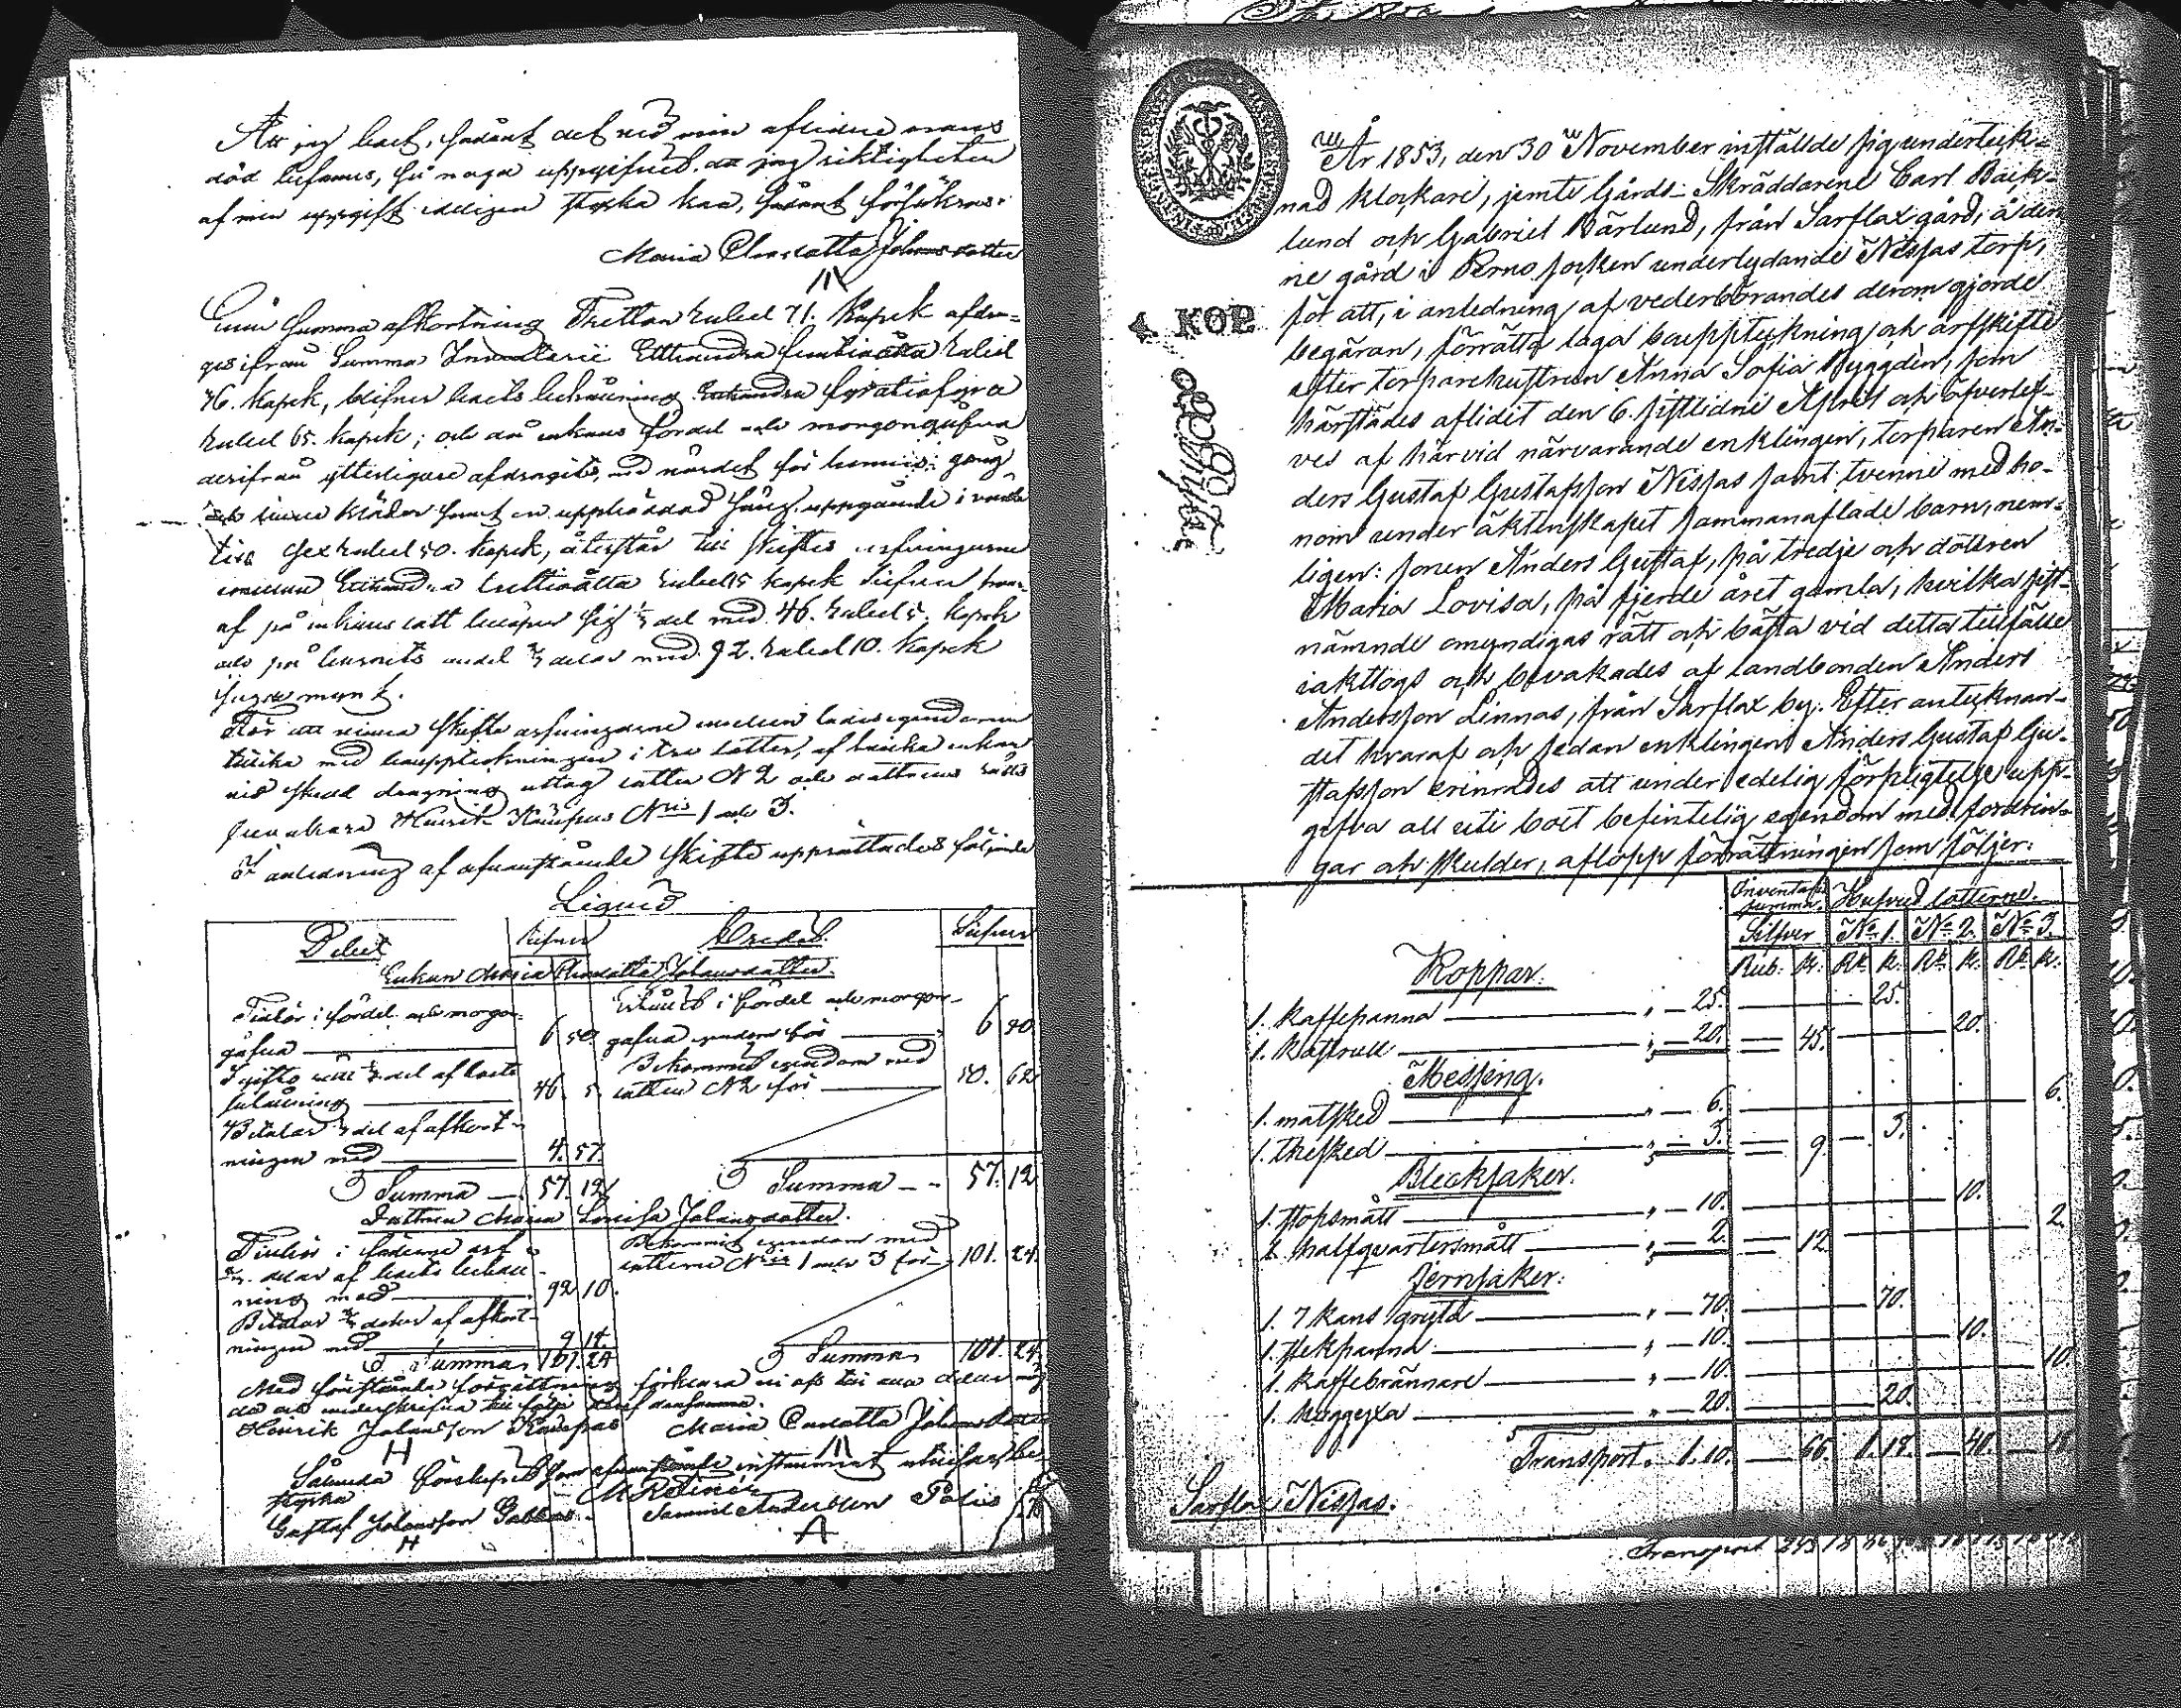 Att jag boet, sådant det vid min aflidne mans
död befanns, så noga uppgifvit, att jag riktigheten
af min uppgift edeligen styrka kan, sådant försäkras.
Maria Charlotta Johansdotter
Summa afkortning Tretton rubel 71. kopek afdra-
ges ifrån Summa Inventarii Etthundra femtioåtta rubel
36. kopek, blifver boets behållning Etthundra fyratiofyra
rubel 65. kopek; och då enkans fördel och morgongåfva
derifrån ytterligare afdragits,
kläder samt en uppbäddad säng, uppgående i värde
till Sex rubel 50. kopek, återstår till skiftes arfvingarne
emellan Etthundra trettioåtta rubel 15 kopek Silfver hvar-
af på enkans lott belöper sig 1/3 del med 46. rubel 5. kopek
och på barnets andel 2/3 delar med 92. rubel 10. kopek
Silfvermynt.
För att vinna skifte arfvingarne emellan lades egendomen
tillika med bouppteckningen i tre lotter, af hvilka enkan
vid skedd dragning uttog lotten N 2 och dottrens
Henrik Kämpas N:ris 1 och 3.
I anledning af ofvanstående skifte upprättades följande
Liquid
Debet Silfver Credit. Silfver
Enkan Maria Charlotta Johansdotter.
Tillhör i fördel och morgon- Erhållit i fördel och morgon-
gåfva 6 50 gåfva egendom för 6 50.
I gifto rätt 1/3 del af boets Bekommit egendom med
behållning 46 5 lotten N 2 för 50. 62
Betalar 1/3 del af afkort-
ningen med 4. 57.
Summa 57. 12 Summa 57. 12
Dottren Maria Lovisa Johansdotter.
Tillhör i fäderne arf Bekommit egendom med
2/3 delar af boets behåll- lotterne N:ris 1 och 3 för 101. 24.
ning med 92 10.
Betalar 2/3 delar af afkort-
ningen med 9 14.
Summa 101. 24 Summa 101. 24
Med förestående förrättning förklara vi oss till alla delar nöj-
da och underskrifva till följe deraf densamma.
Henrik Johansson Kämpas Maria Charlotta Johansdotter
H
Sålunda förelupit som ofvanstående instrument utvisar be-
styrka
Gustaf Johansson Gabbas. Samuel Andersson
A
År 1853, den 30 November inställde sig underteck-
nad klockare, jemte Gårds-Skräddarene Carl Back-
lund och Gabriel Värlund, från Sarflax gård, å den
ne gård i Perno socken underlydande Nissas torp,
för att, i anledning af vederbörandes derom gjorde
begäran, förrätta laga bouppteckning och arfskifte
efter torparehustrun Anna Sofia Byggdén, som
härstädes aflidit den 6. sistlidne April och öfverlef-
ves af härvid närvarande enklingen, torparen An-
ders Gustaf Gustafsson Nissas samt tvenne med ho-
nom under äktenskapet sammanaflade barn, nem-
ligen: sonen Anders Gustaf, på tredje och dottren
Maria Lovisa, på fjerde året gamla, hvilka sist-
nämnde omyndigas rätt och bästa vid detta tillfälle
iakttogs och bevakades af landbonden Anders
Andersson Linnas, från Sarflax by. Efter antecknan-
det hvaraf och sedan enklingen Anders Gustaf Gu-
stafsson erinrades att under edelig förpligtelse upp-
gifva all uti boet befintelig egendom med fordrin-
gar och skulder, aflopp förrättningen som följer:
4 KOP
Inventarii summa. Hufvud lotterne.
Silfver N:o 1. N:o 2. N:o 3.
Rub. K. R. K. R. K. R. K.
Koppar.
1. kaffepanna 25. 25.
1. kastrull 20. 45. 20.
Messing.
1. matsked 6. 6.
1. thesked 3. 9 3.
Blecksaker.
1. stopsmått 10. 10.
1. halfqvartersmått 2. 12 2
Jernsaker.
1. 7 kans gryta 70. 70.
1. stekpanna 10. 10.
1. kaffebrännare 10. 10.
1. huggyxa 20. 20.
Transport. 1.10. 66. 1.18. 40. 18
Sarflax Nissas.
Transport